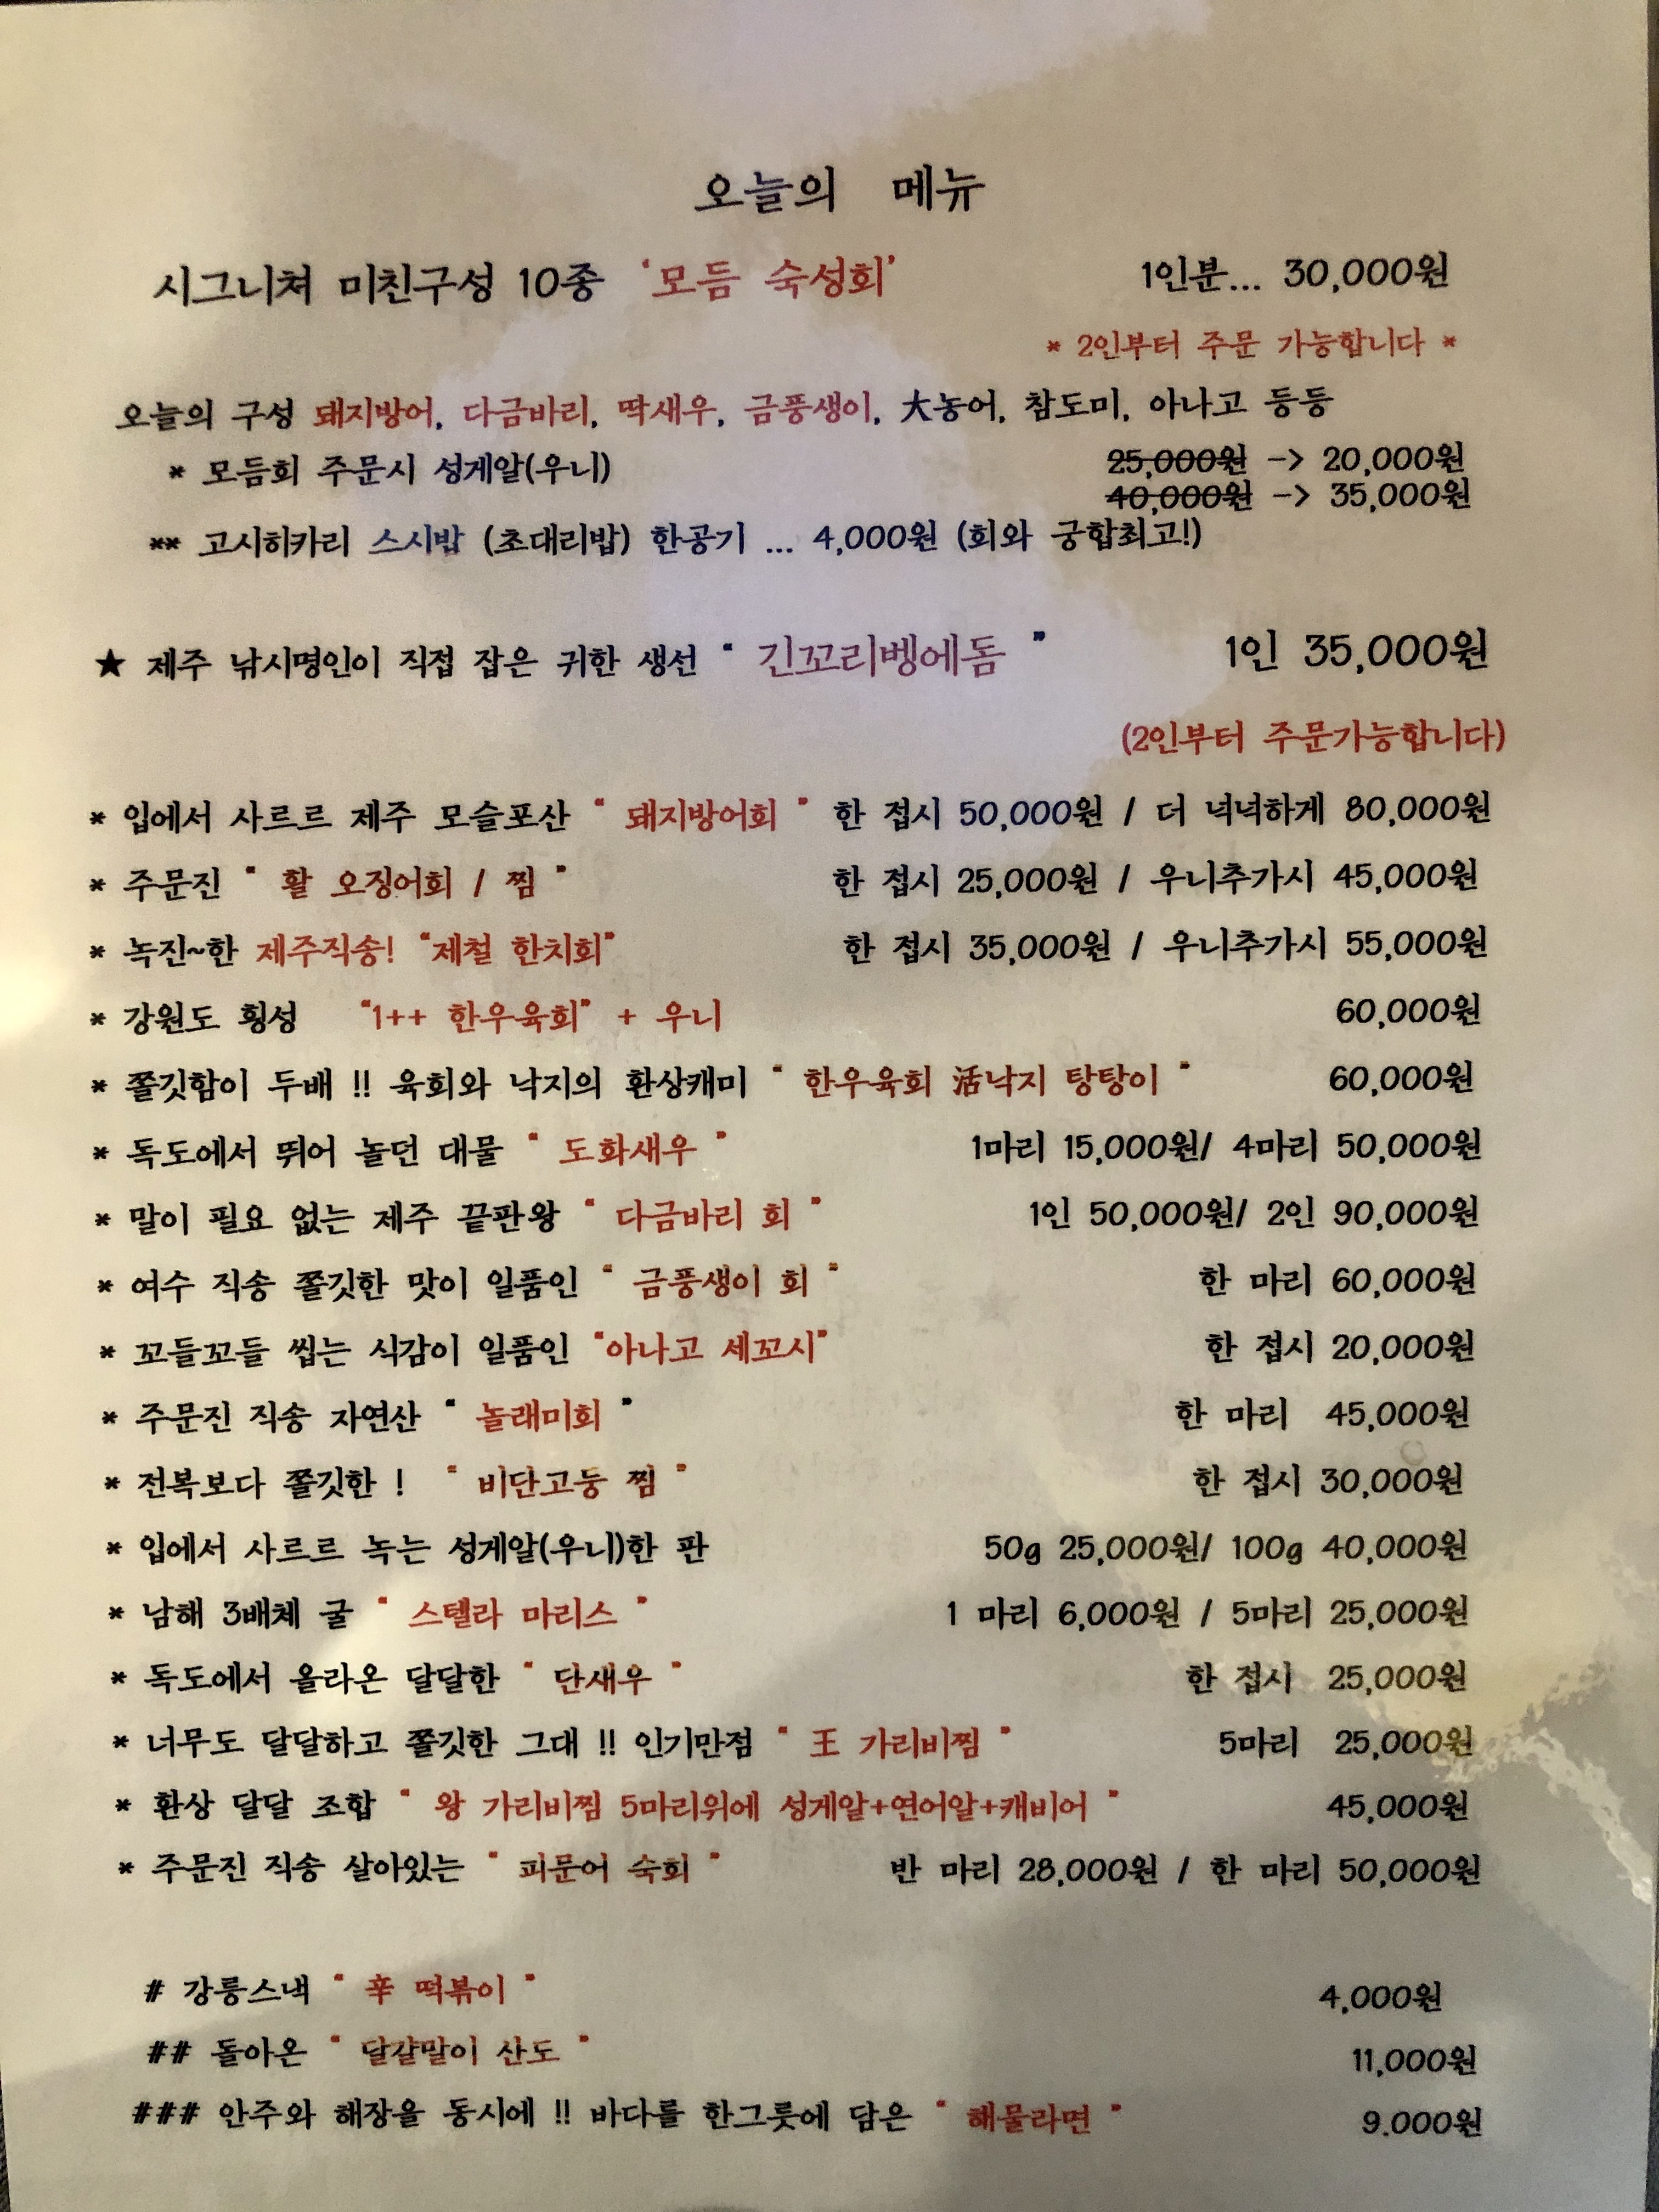 오늘의 메뉴
시그니쳐 미친구성 10종 '모듬 숙성회' 1인분... 30,000원
* 2인부터 주문 가능합니다 *
오늘의 구성 돼지방어, 다금바리, 딱새우, 금풍생이, 大농어, 참도미, 아나고 등등
* 모듬회 주문시 성게알(우니) 25,000원 -> 20,000원
40,000원 -> 35,000원
** 고시히카리 스시밥 (초대리밥) 한공기 ... 4,000원 (회와 궁합최고!)
★ 제주 낚시명인이 직접 잡은 귀한 생선 " 긴꼬리벵에돔 " 1인 35,000원
(2인부터 주문가능합니다)
* 입에서 사르르 제주 모슬포산 " 돼지방어회 " 한 접시 50,000원 / 더 넉넉하게 80,000원
* 주문진 " 활 오징어회 / 찜 " 한 접시 25,000원 / 우니추가시 45,000원
* 녹진~한 제주직송! "제철 한치회" 한 접시 35,000원 / 우니추가시 55,000원
* 강원도 횡성 "1++ 한우육회" + 우니 60,000원
* 쫄깃함이 두배 !! 육회와 낙지의 환상캐미 " 한우육회 活낙지 탕탕이 " 60,000원
* 독도에서 뛰어 놀던 대물 " 도화새우 " 1마리 15,000원/ 4마리 50,000원
* 말이 필요 없는 제주 끝판왕 " 다금바리 회 " 1인 50,000원/ 2인 90,000원
* 여수 직송 쫄깃한 맛이 일품인 " 금풍생이 회 " 한 마리 60,000원
* 꼬들꼬들 씹는 식감이 일품인 "아나고 세꼬시" 한 접시 20,000원
* 주문진 직송 자연산 " 놀래미회 " 한 마리 45,000원
* 전복보다 쫄깃한 ! " 비단고둥 찜 " 한 접시 30,000원
* 입에서 사르르 녹는 성게알(우니)한 판 50g 25,000원/ 100g 40,000원
* 남해 3배체 굴 " 스텔라 마리스 " 1 마리 6,000원 / 5마리 25,000원
* 독도에서 올라온 달달한 " 단새우 " 한 접시 25,000원
* 너무도 달달하고 쫄깃한 그대 !! 인기만점 " 王 가리비찜 " 5마리 25,000원
* 환상 달달 조합 " 왕 가리비찜 5마리위에 성게알+연어알+캐비어 " 45,000원
* 주문진 직송 살아있는 " 피문어 숙회 " 반 마리 28,000원 / 한 마리 50,000원
# 강릉스낵 " 辛 떡볶이 " 4,000원
## 돌아온 " 달걀말이 산도 " 11,000원
### 안주와 해장을 동시에 !! 바다를 한그릇에 담은 " 해물라면 " 9.000원